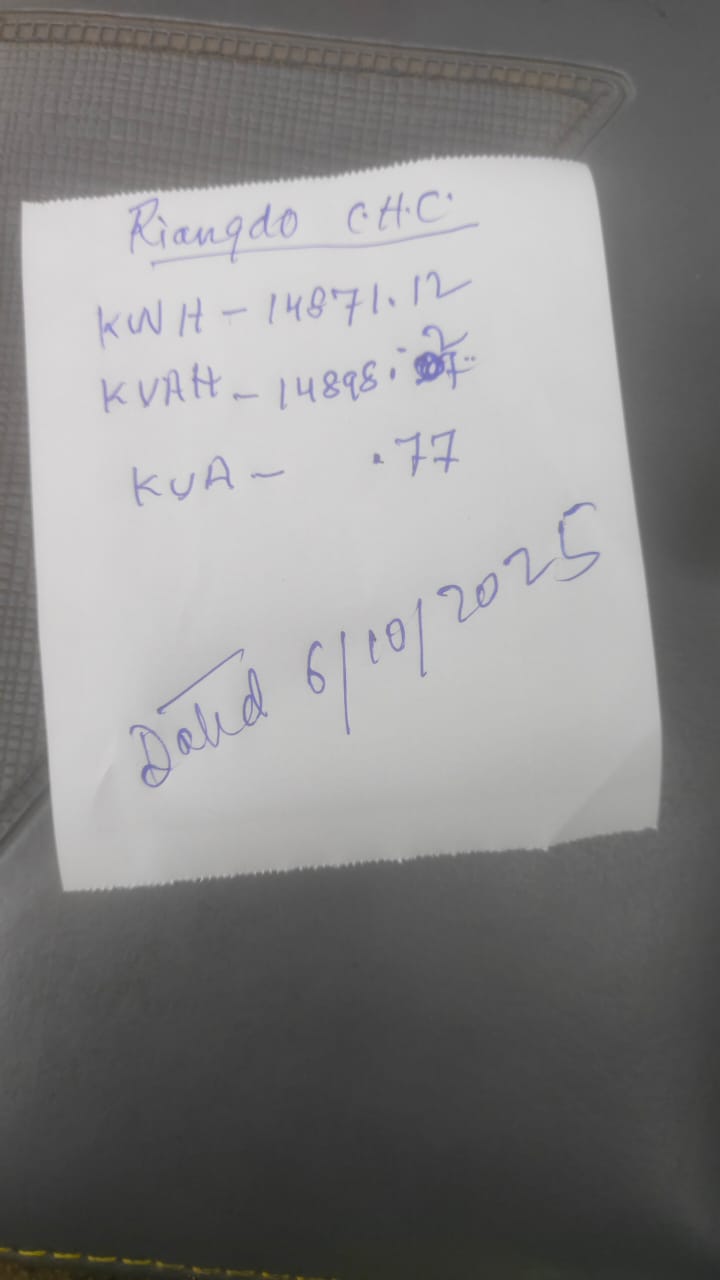 Riangdo C.H.C.
KWH - 14871.12
KVAH - 14898.27
KVA - .77
Dated 6/10/2025